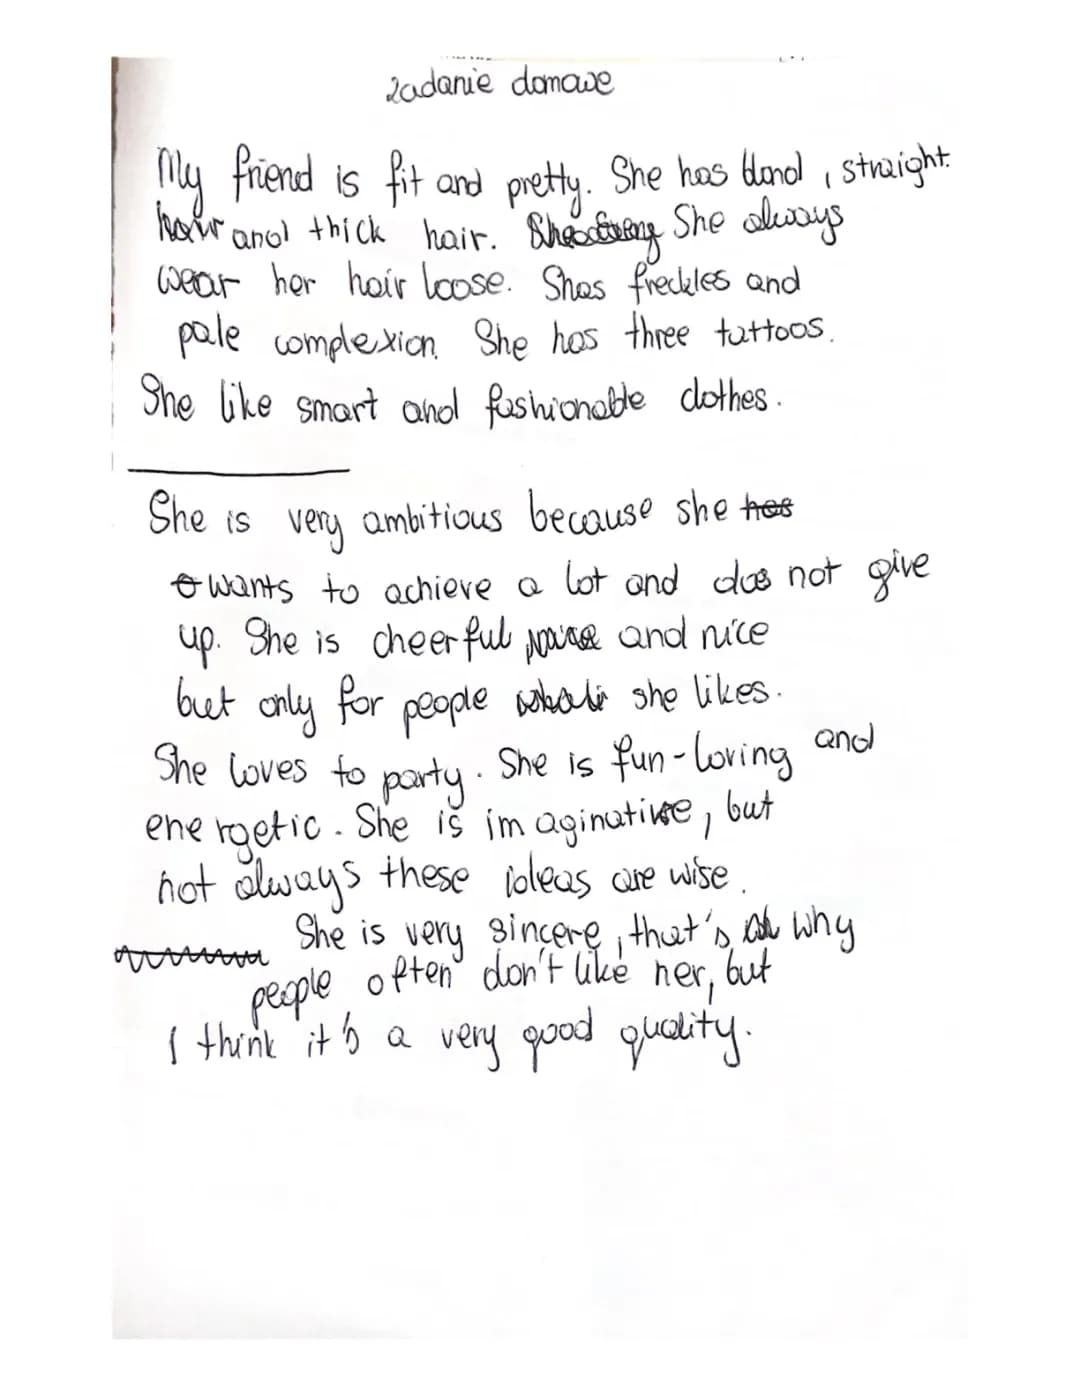 zadanie domowe
My friend is fit and pretty. She has blond, straight.
hair and thick hair. She always
wear her hair loose. Shas freckles and
pale complexion. She has three tattoos.
She like smart and fashionable clothes.
She is very ambitious because she has
wants to achieve a lot and does not give
up. She is cheerful and nice
but only for people she likes.
She loves to party. She is fun-loving and
energetic. She is imaginative, but
not always these ideas are wise.
She is very sincere, that's why
people often don't like her, but
I think it's a very good quality.